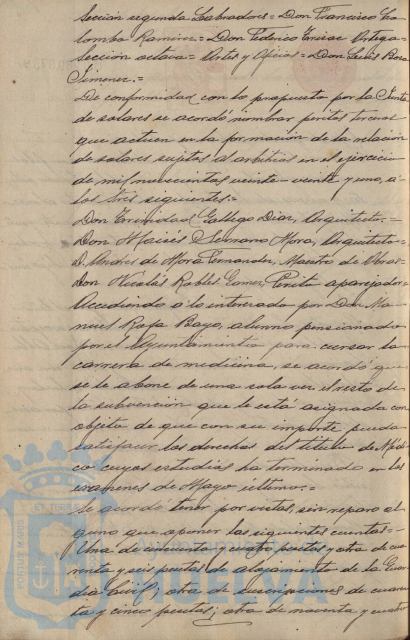 Sección segunda Labradores = Don Francisco Co
lombo Ramirez = Don Federico Ortega =
Sección octava = Artes y Oficios = Don Luis Baco
Jimenez. =
De conformidad con lo propuesto por la Junta
de solares se acordó nombrar peritos terceros
que actuen en la formación de la relación
de solares sujetos al arbitrio en el ejercicio
de mil novecientos veinte-veinte y uno, a
los tres siguientes:
Don Trinidad Gallego Diaz, Arquitecto. =
Don Moisés Serrano Mora, Arquitecto =
D. Andrés de Mora Fernandez, Maestro de Obras
Don Nicolás Robles Gomez, Perito aparejador =
Accediendo a lo interesado por Don Ma
nuel Rofa Bayo, alumno pensionado
por el Ayuntamiento para cursar la
carrera de medicina, se acordó que
se le abone de una sola vez el resto de
la subvención que le está asignada con
objeto de que con su importe pueda
satisfacer los derechos del título de Médi
co cuyos estudios ha terminado en los
examenes de Mayo último. =
Se acordó tener por vistas, sin reparo al
guno que oponer las siguientes cuentas =
Una de cincuenta y cuatro pesetas y otra de cua
renta y seis pesetas de alojamiento de la Guar
dia Civil; otra de suscripciones de cuaren
ta y cinco pesetas; otra de noventa y cuatro
PORTUS MARIS
HUELVA